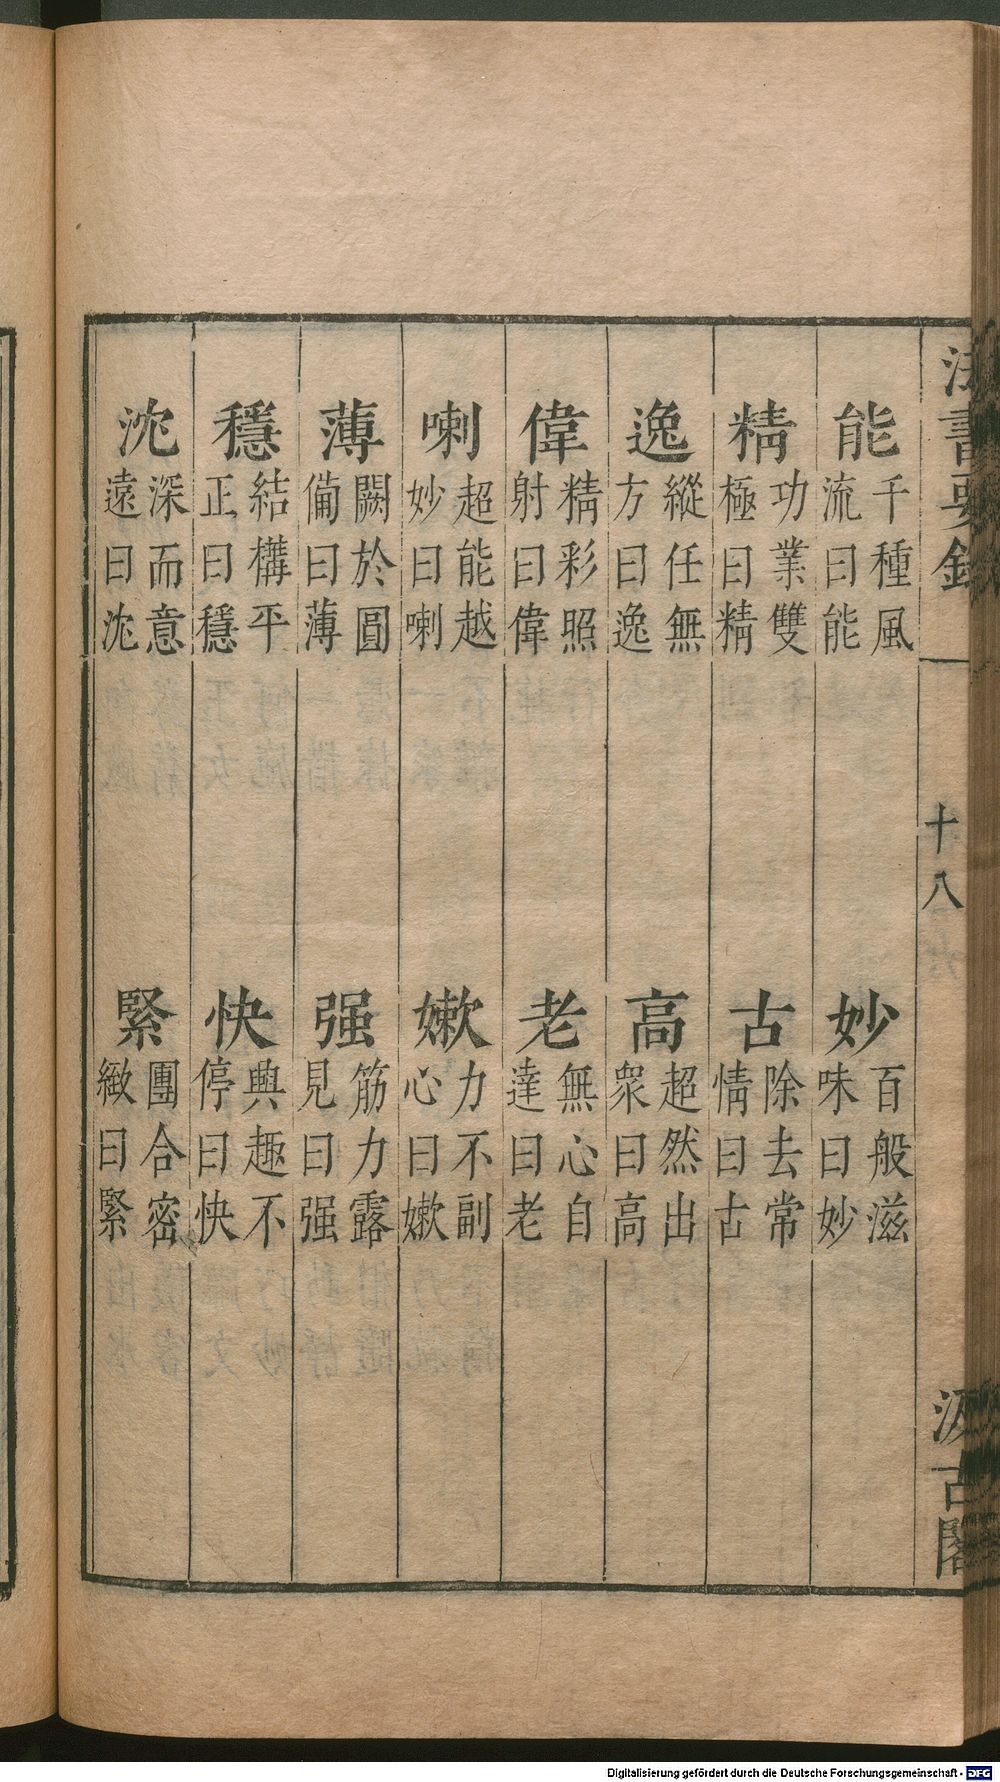 法書要錄
十八
汲古閣
能 千種風流曰能
妙 百般滋味曰妙
精 功業雙極曰精
古 除去常情曰古
逸 縱任無方曰逸
高 超然出衆曰高
偉 精彩照射曰偉
老 無心自達曰老
喇 超能越妙曰喇
嫰 力不副心曰嫰
薄 闕於圓備曰薄
强 筋力露見曰强
穩 結構平正曰穩
快 興趣不停曰快
沈 深而意遠曰沈
緊 團合密緻曰緊
Digitalisierung gefördert durch die Deutsche Forschungsgemeinschaft - DFG